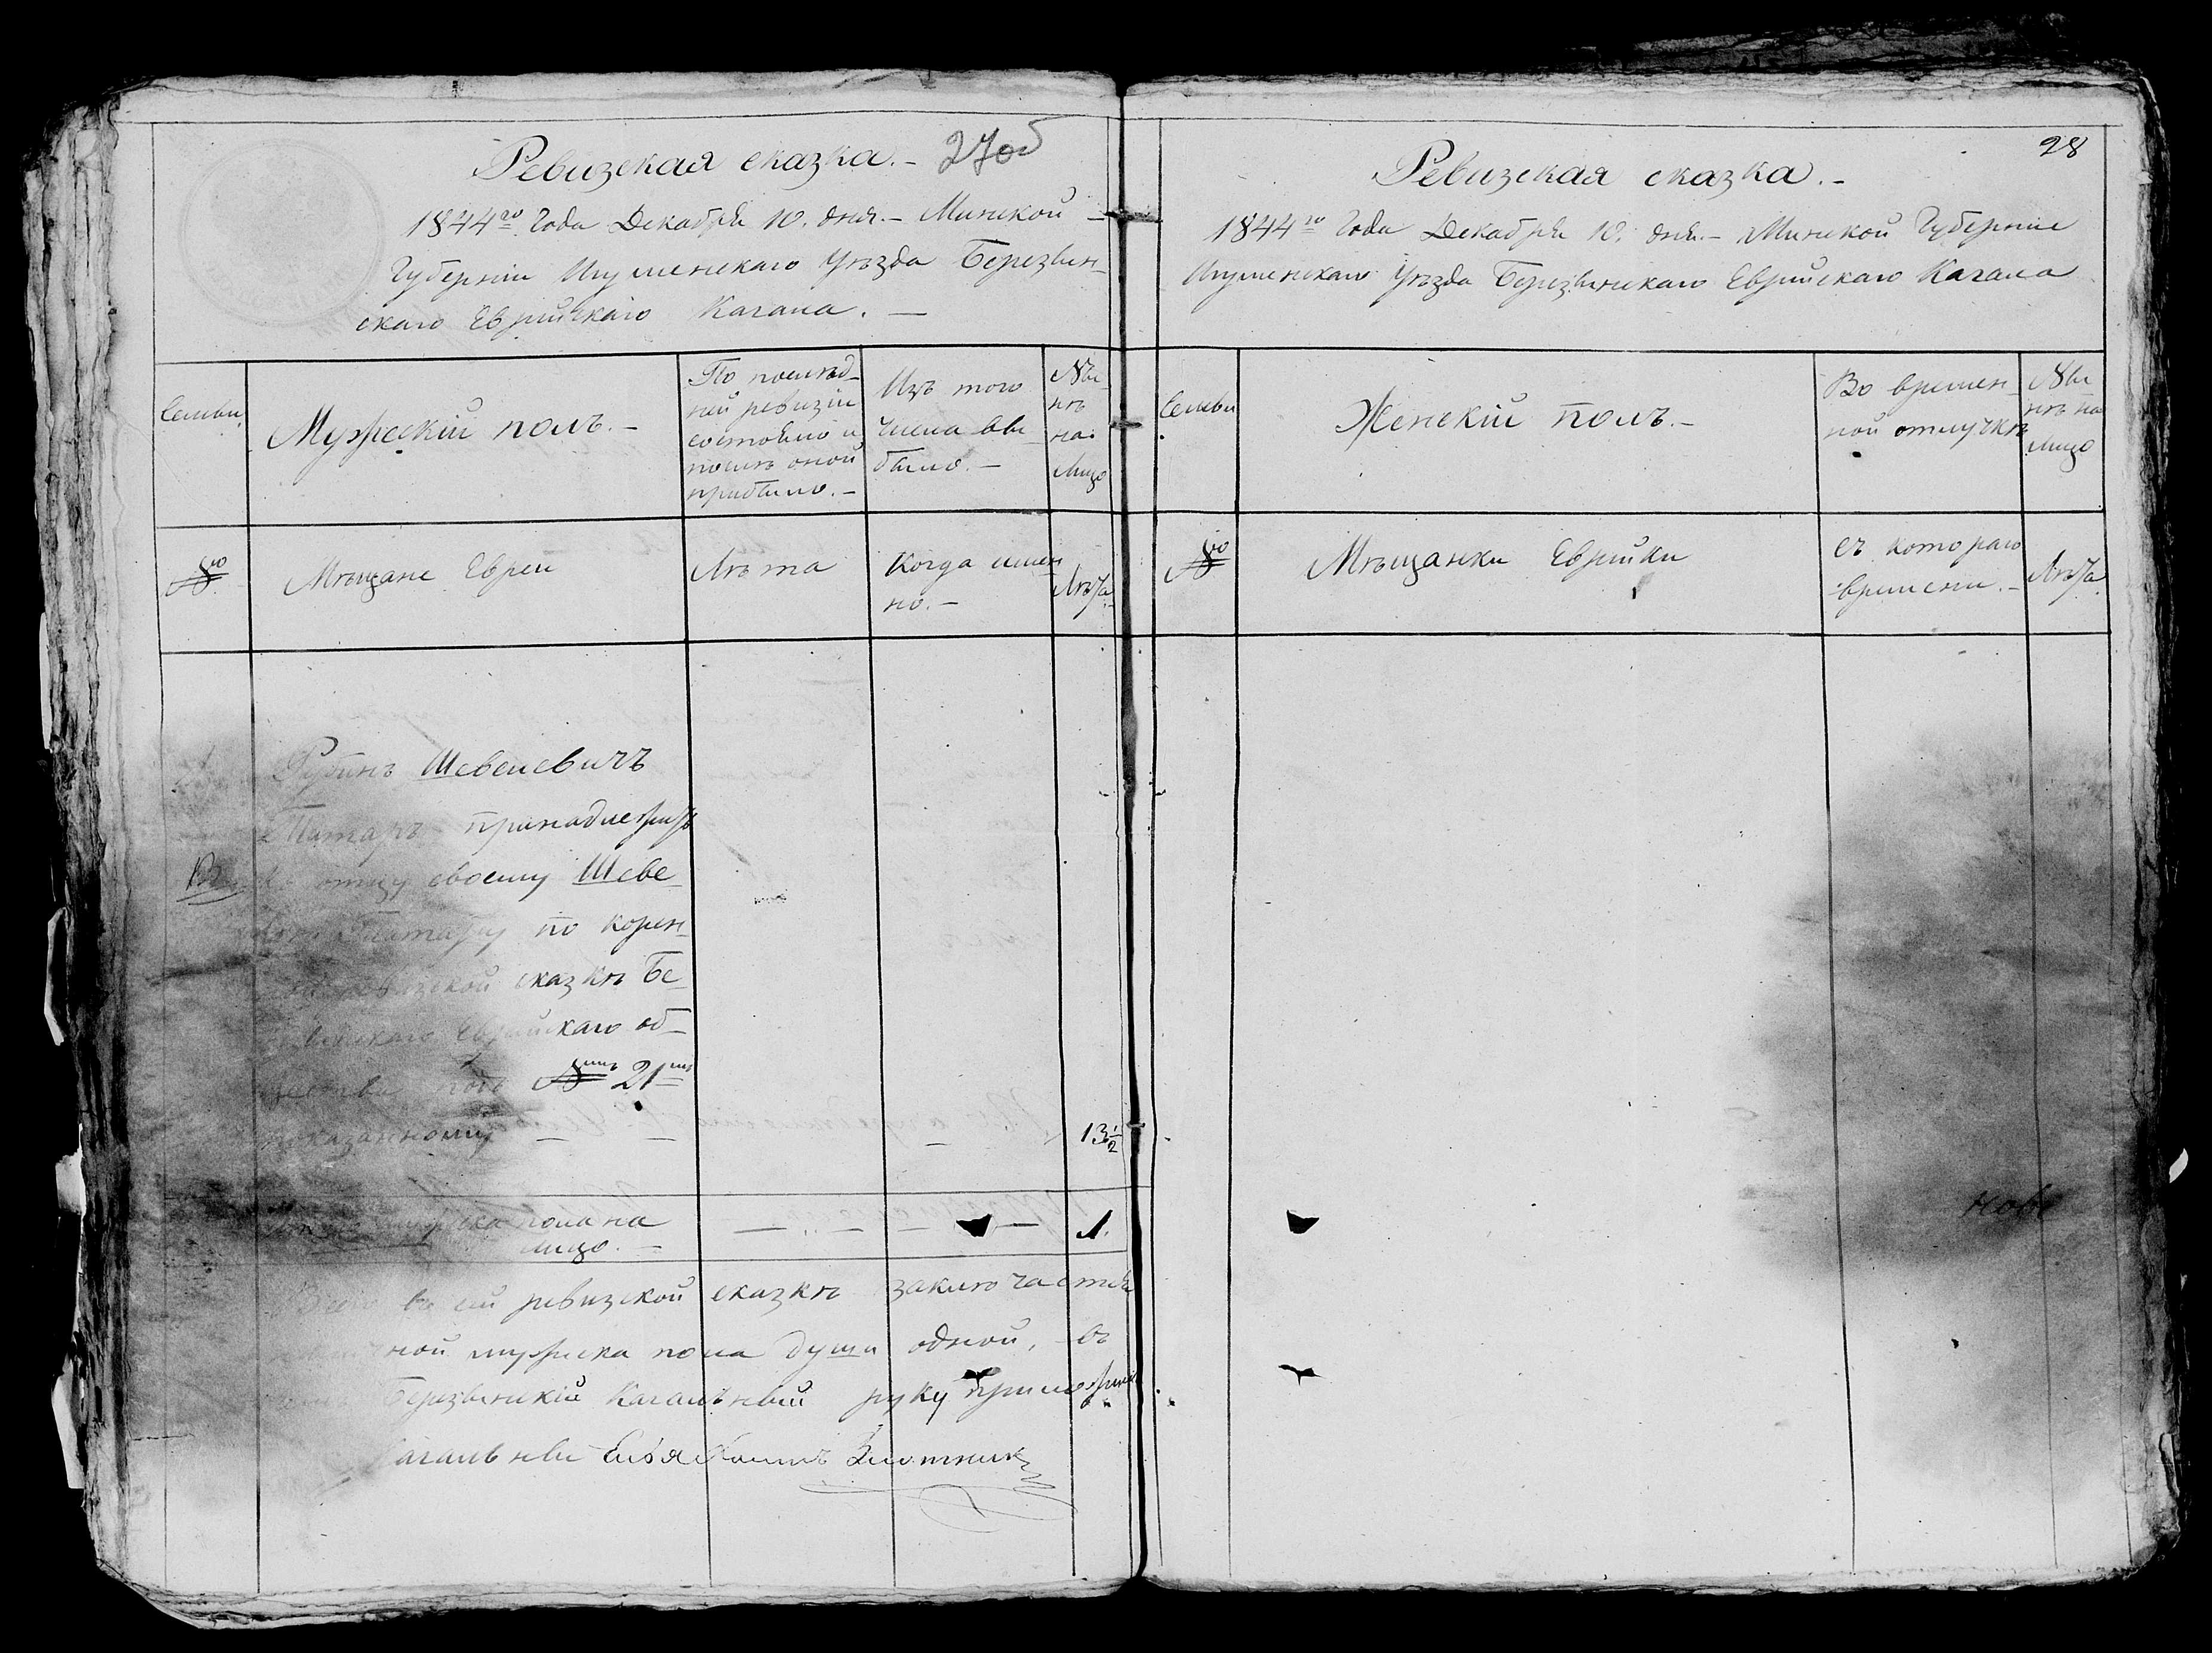 Ревизская сказка. – 27об
1844го Года Декабря 10. дня. – Минской
Губерніи Игуменскаго Уѣзда Березин-
скаго Еврейскаго Кагала. —
Семьи
Мужескій полъ. –
По послѣд-
ней ревизіи
состояло и
послѣ оной
прибыло. –
Изъ того
числа вы-
было. –
Ны-
нѣ
на
Лицо
№ро
Мѣщане Евреи
Лѣта
Когда имен
но. –
Лѣта
Рубинъ Шевелевичъ
принадлежитъ
отцу своему Шеве-
по корен-
ревизской сказкѣ Бе-
Еврейскаго об-
подъ №мъ 21мъ
показанному — —
13½
мужеска пола на
лицо. —
1.
Всего въ сей ревизской сказкѣ заключается
ной мужеска пола души одной, въ
Березинскій Кагальный руку приложилъ
Кагальный Злотник
28
Ревизская сказка. –
1844го Года Декабря 10. дня. – Минской Губерніи
Игуменскаго Уѣзда Березинскаго Еврейскаго Кагала
Семьи
Женскій полъ. –
Во времен-
ной отлучкѣ
Ны
нѣ на
лицо
№ро
Мѣщанки Еврейки
съ котораго
времени. –
Лѣта